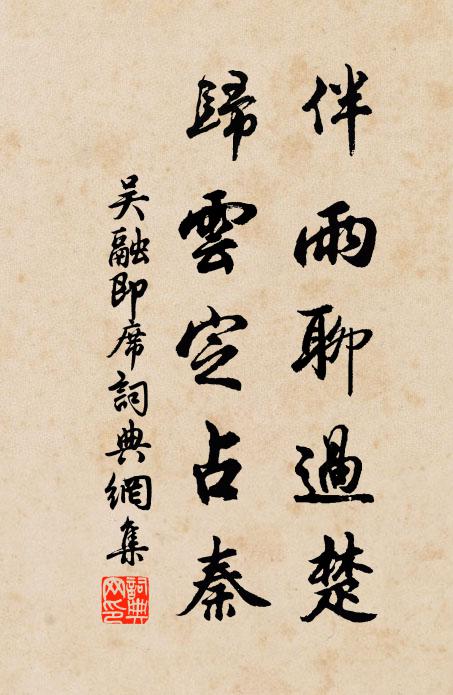 伴雨聊過楚
歸雲定占秦
吴融即席詞典網集
詞典網印